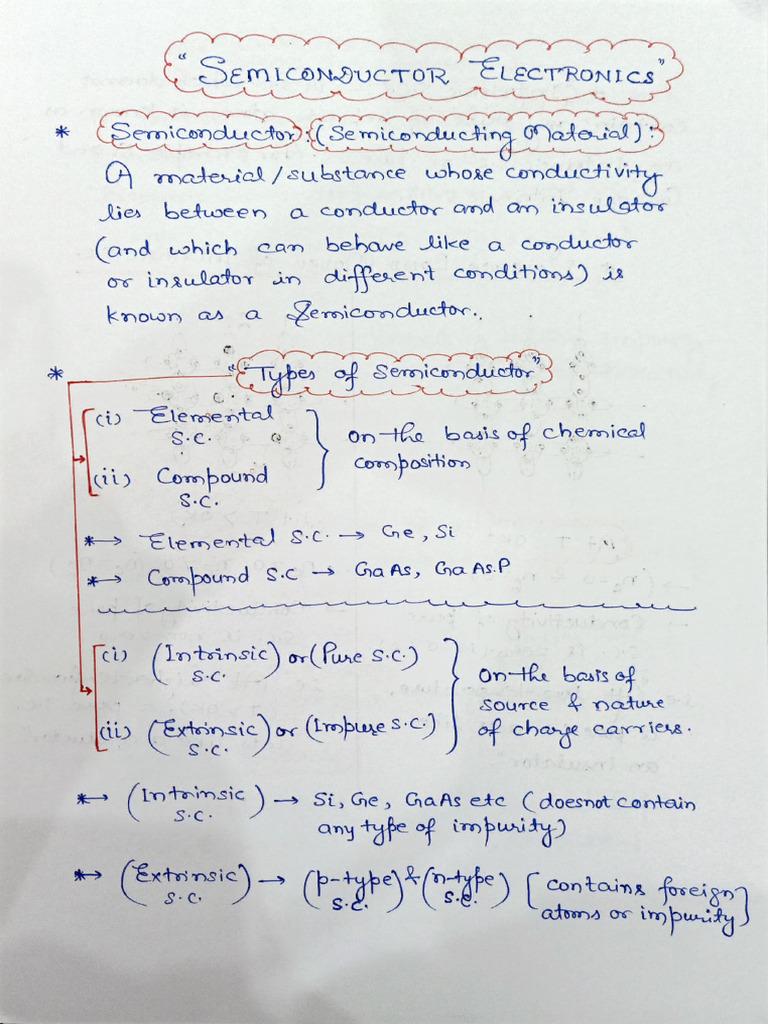 "SEMICONDUCTOR ELECTRONICS"
* Semiconductor: (Semiconducting Material):
A material/substance whose conductivity
lies between a conductor and an insulator
(and which can behave like a conductor
or insulator in different conditions) is
known as a Semiconductor.
* "Types of Semiconductor"
(i) Elemental S.C.
(ii) Compound S.C.
on the basis of chemical
composition
*→ Elemental S.C. → Ge, Si
*→ Compound S.C → GaAs, GaAs.P
(i) (Intrinsic S.C.) or (Pure S.C.)
(ii) (Extrinsic S.C.) or (Impure S.C.)
on the basis of
source & nature
of charge carriers.
*→ (Intrinsic S.C.) → Si, Ge, GaAs etc (doesnot contain
any type of impurity)
*→ (Extrinsic S.C.) → (p-type S.C.) & (n-type S.C.) [contains foreign
atoms or impurity]